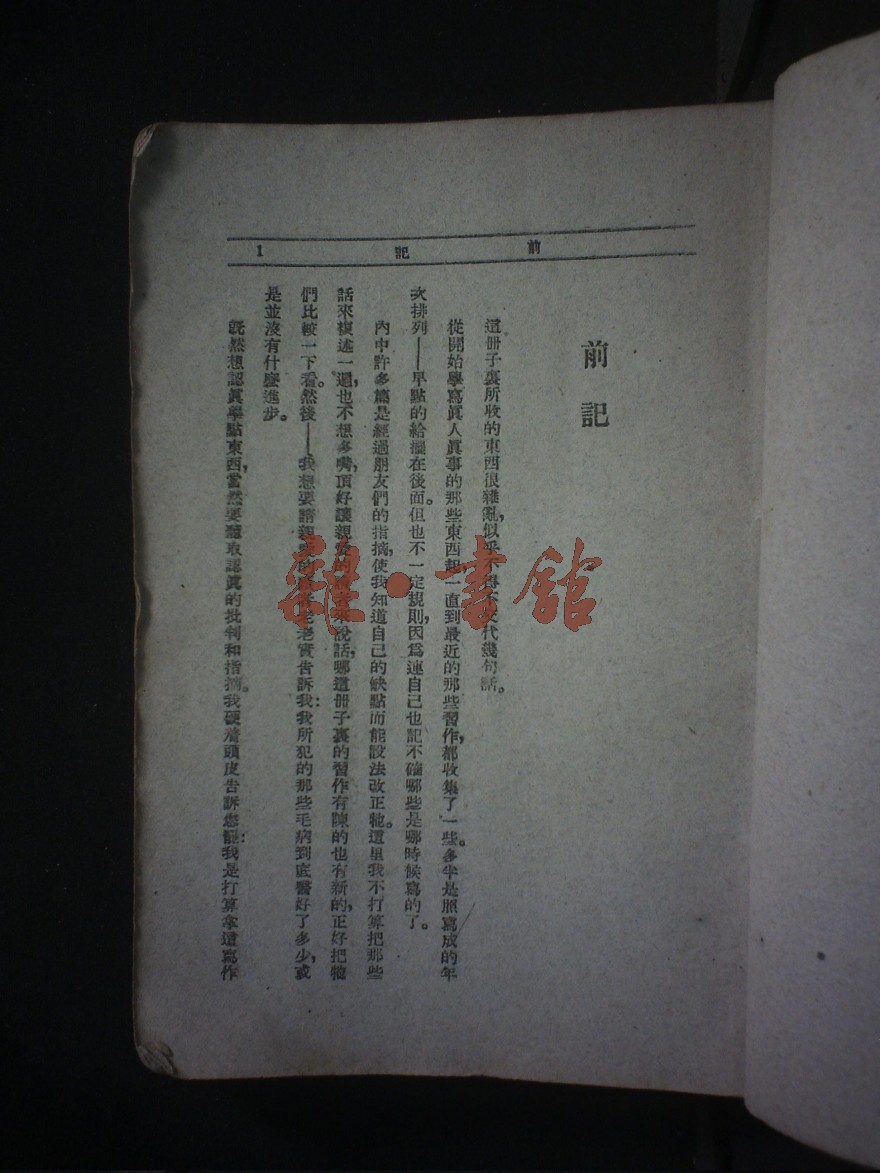 前記 1
前記
這册子裏所收的東西很雜亂,似乎不得不交代幾句話。
從開始學寫眞人眞事的那些東西起,一直到最近的那些習作,都收集了一些。多半是照寫成的年
次排列——早點的給擺在後面。但也不一定規則,因爲連自己也記不確哪些是哪時候寫的了。
內中許多篇是經過朋友們的指摘,使我知道自己的缺點而能設法改正牠。這里我不打算把那些
話來複述一遍,也不想多嘴,頂好讓親愛的讀者來說話,哪這册子裏的習作有陳的也有新的,正好把牠
們比較一下看。然後——我想要請親愛的讀者老老實告訴我:我所犯的那些毛病到底醫好了多少,或
是並沒有什麼進步。
旣然想認眞學點東西,當然要聽取認眞的批判和指摘。我硬着頭皮告訴您罷:我是打算拿這寫作
雜·書館